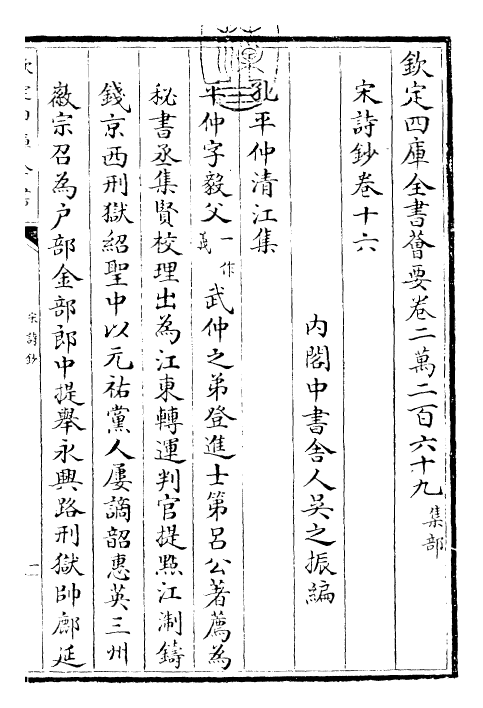 欽定四庫全書薈要卷二萬二百六十九集部
宋詩鈔卷十六
內閣中書舍人吳之振編
孔平仲清江集
平仲字毅父一作義武仲之弟登進士第呂公著薦為
秘書丞集賢校理出為江東轉運判官提點江淛鑄
錢京西刑獄紹聖中以元祐黨人屢謫韶惠英三州
徽宗召為户部金部郎中提舉永興路刑獄帥鄜延
宋詩鈔
一